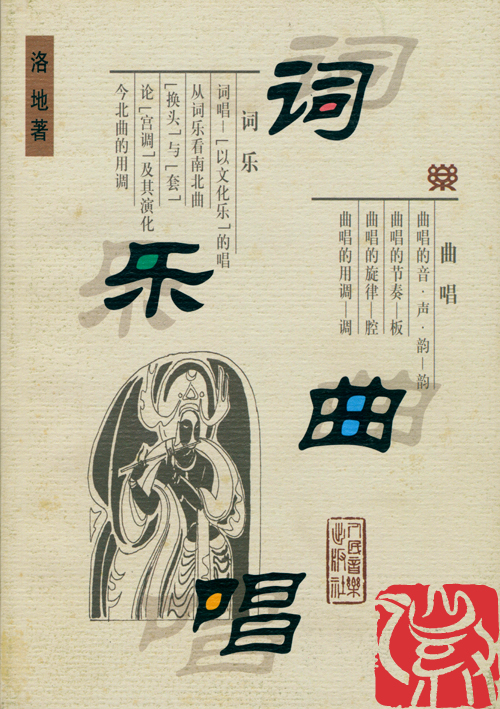 洛地著
词
乐
曲
唱
樂
曲唱
曲唱的音·声·韵—韵
曲唱的节奏—板
曲唱的旋律—腔
曲唱的用调—调
词乐
词唱—「以文化乐」的唱
从词乐看南北曲
「换头」与「套」
论「宫调」及其演化
今北曲的用调
人民音樂
出版社